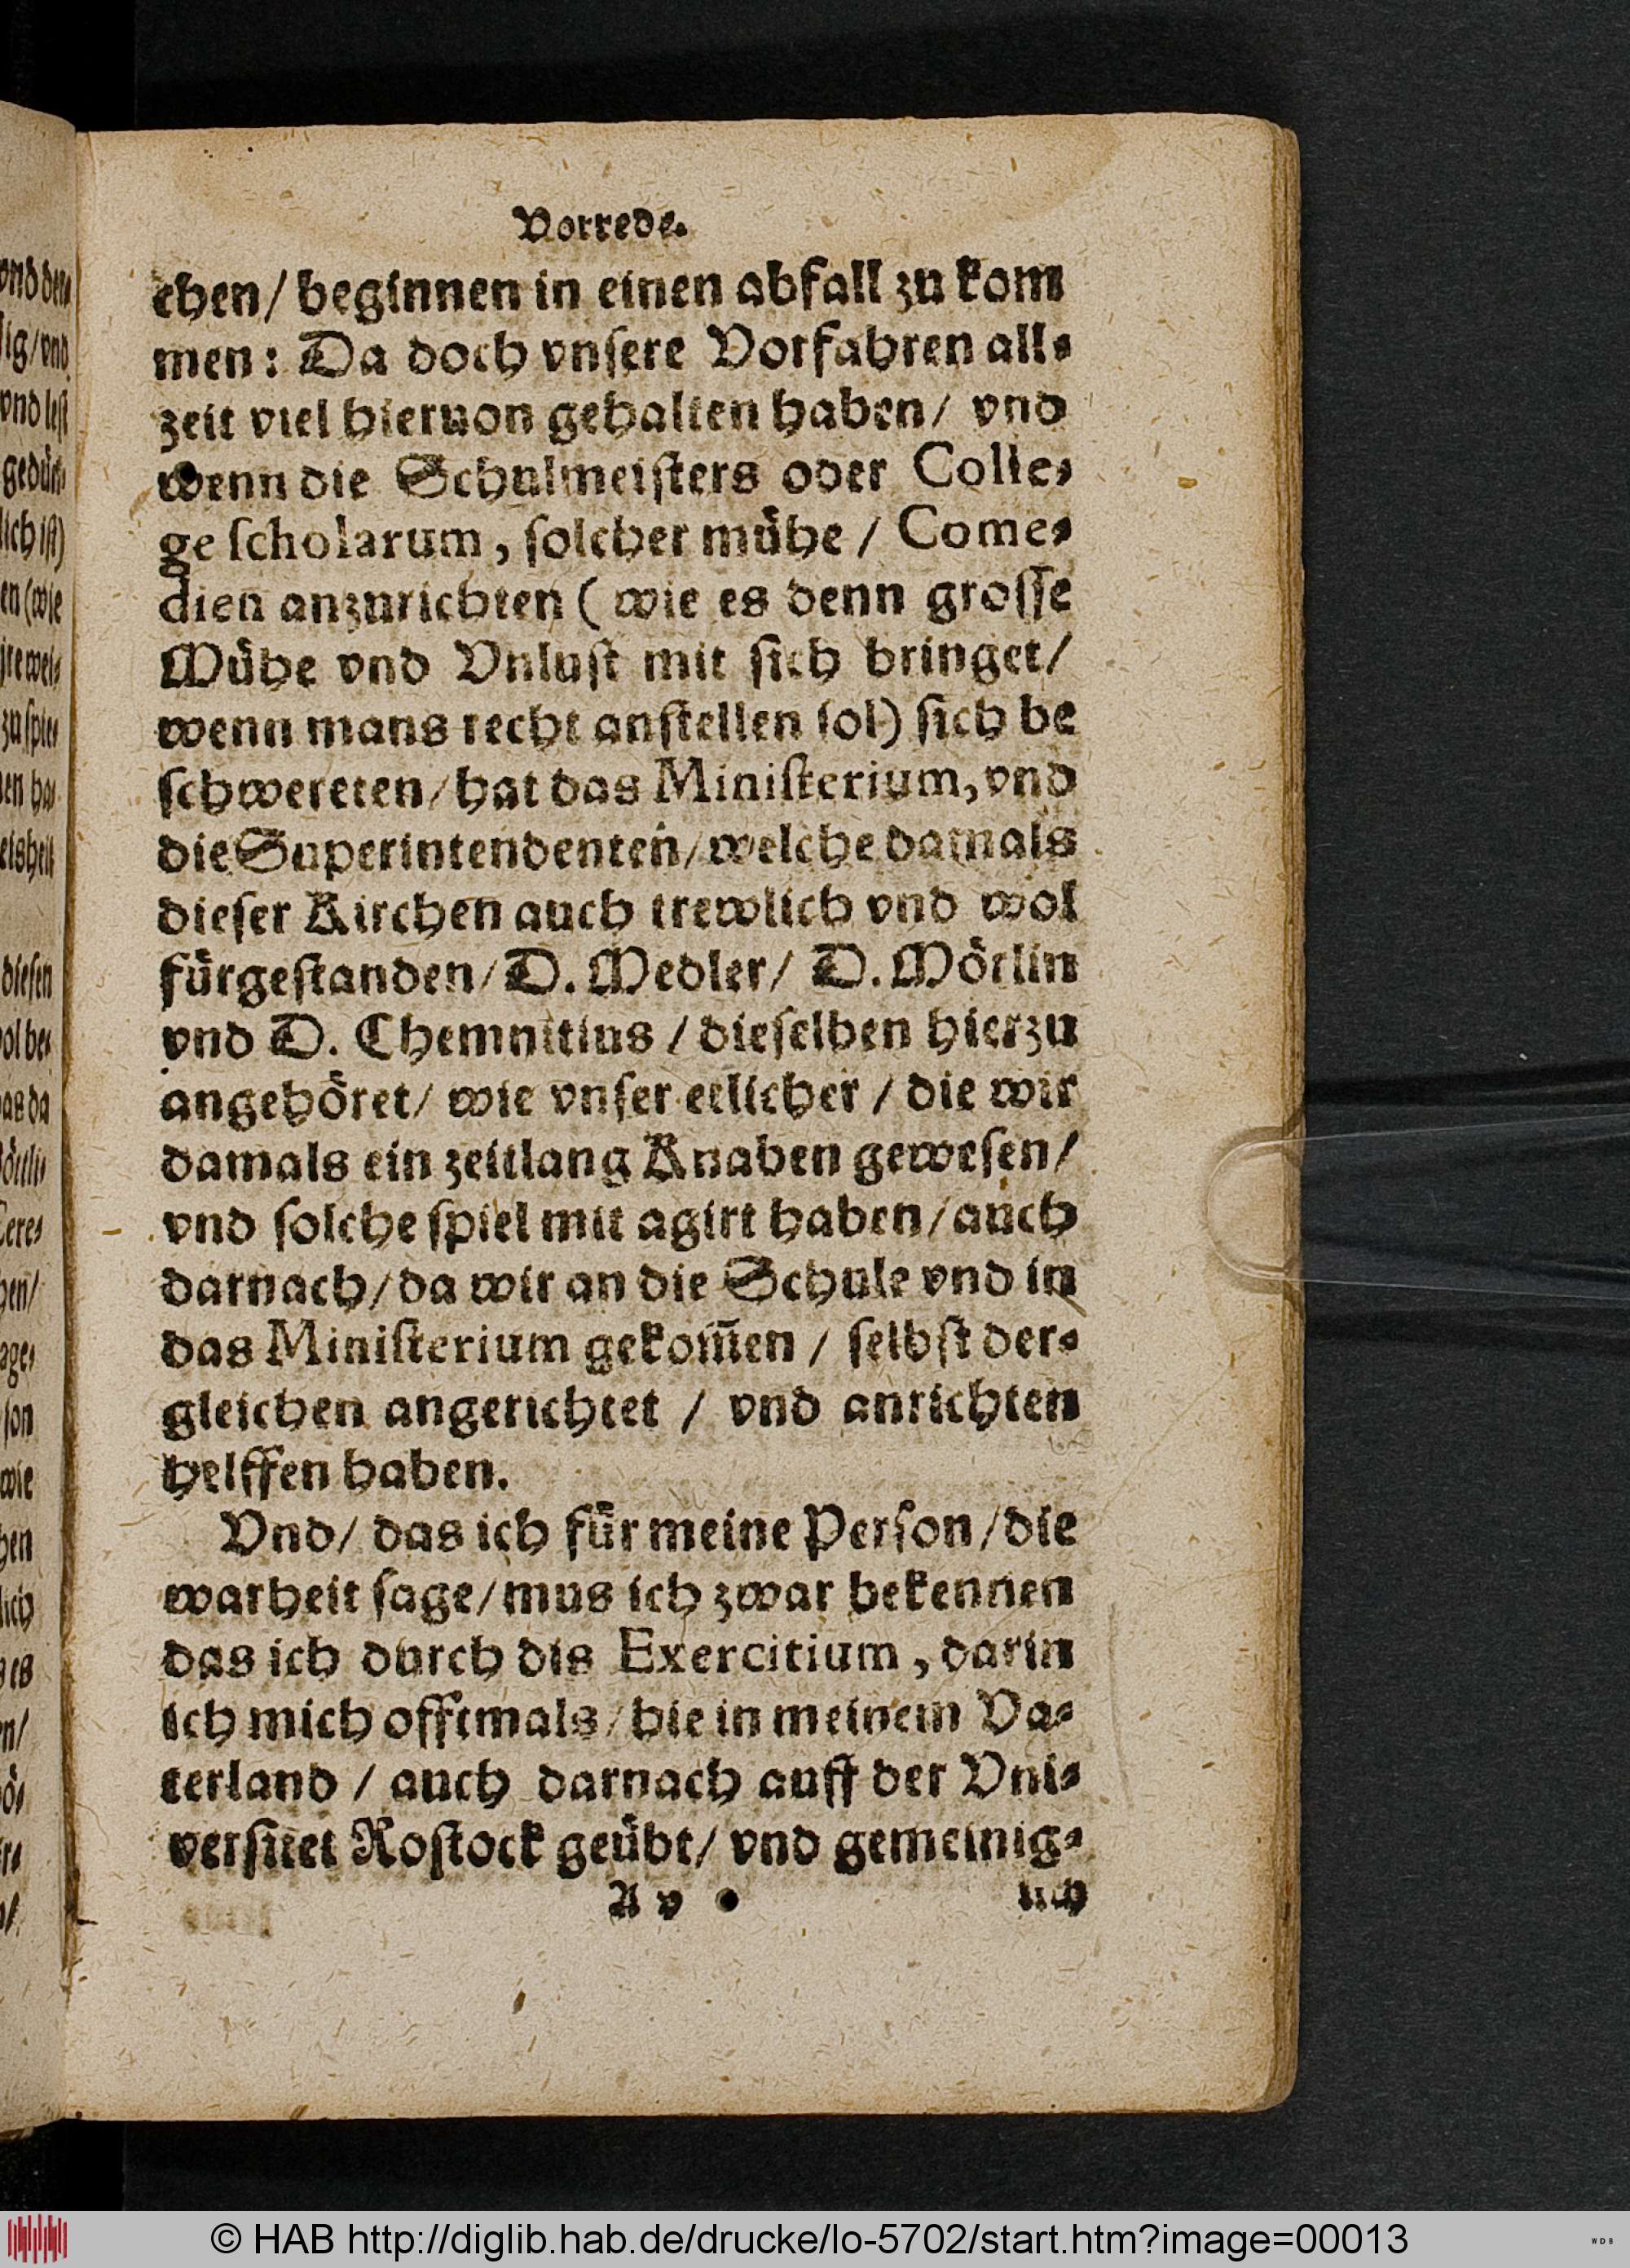 Vorrede.
chen/ beginnen in einen abfall zu kom
men: Da doch vnſere Vorfahren all⸗
zeit viel hieruon gehalten haben/ vnd
wenn die Schulmeiſters oder Colle⸗
ge ſcholarum, ſolcher mühe / Come⸗
dien anzurichten ( wie es denn groſſe
Mühe vnd Vnluſt mit ſich bringet/
wenn mans recht anſtellen ſol) ſich be
ſchwereten/ hat das Miniſterium, vnd
die Superintendenten/ welche damals
dieſer Kirchen auch trewlich vnd wol
fürgeſtanden/ D. Medler/ D. Mörlin
vnd D. Chemnitius / dieſelben hierzu
angehöret/ wie vnſer etlicher / die wir
damals ein zeitlang Knaben geweſen/
vnd ſolche ſpiel mit agirt haben/ auch
darnach/ da wir an die Schule vnd in
das Miniſterium gekom̅en / ſelbſt der⸗
gleichen angerichtet / vnd anrichten
helffen haben.
Vnd/ das ich für meine Perſon/ die
warheit ſage/ mus ich zwar bekennen
das ich durch dis Exercitium, darin
ich mich offtmals/ hie in meinem Va⸗
terland / auch darnach auff der Vni⸗
verſitet Roſtock geübt/ vnd gemeinig⸗
A v
lich
© HAB http://diglib.hab.de/drucke/lo-5702/start.htm?image=00013